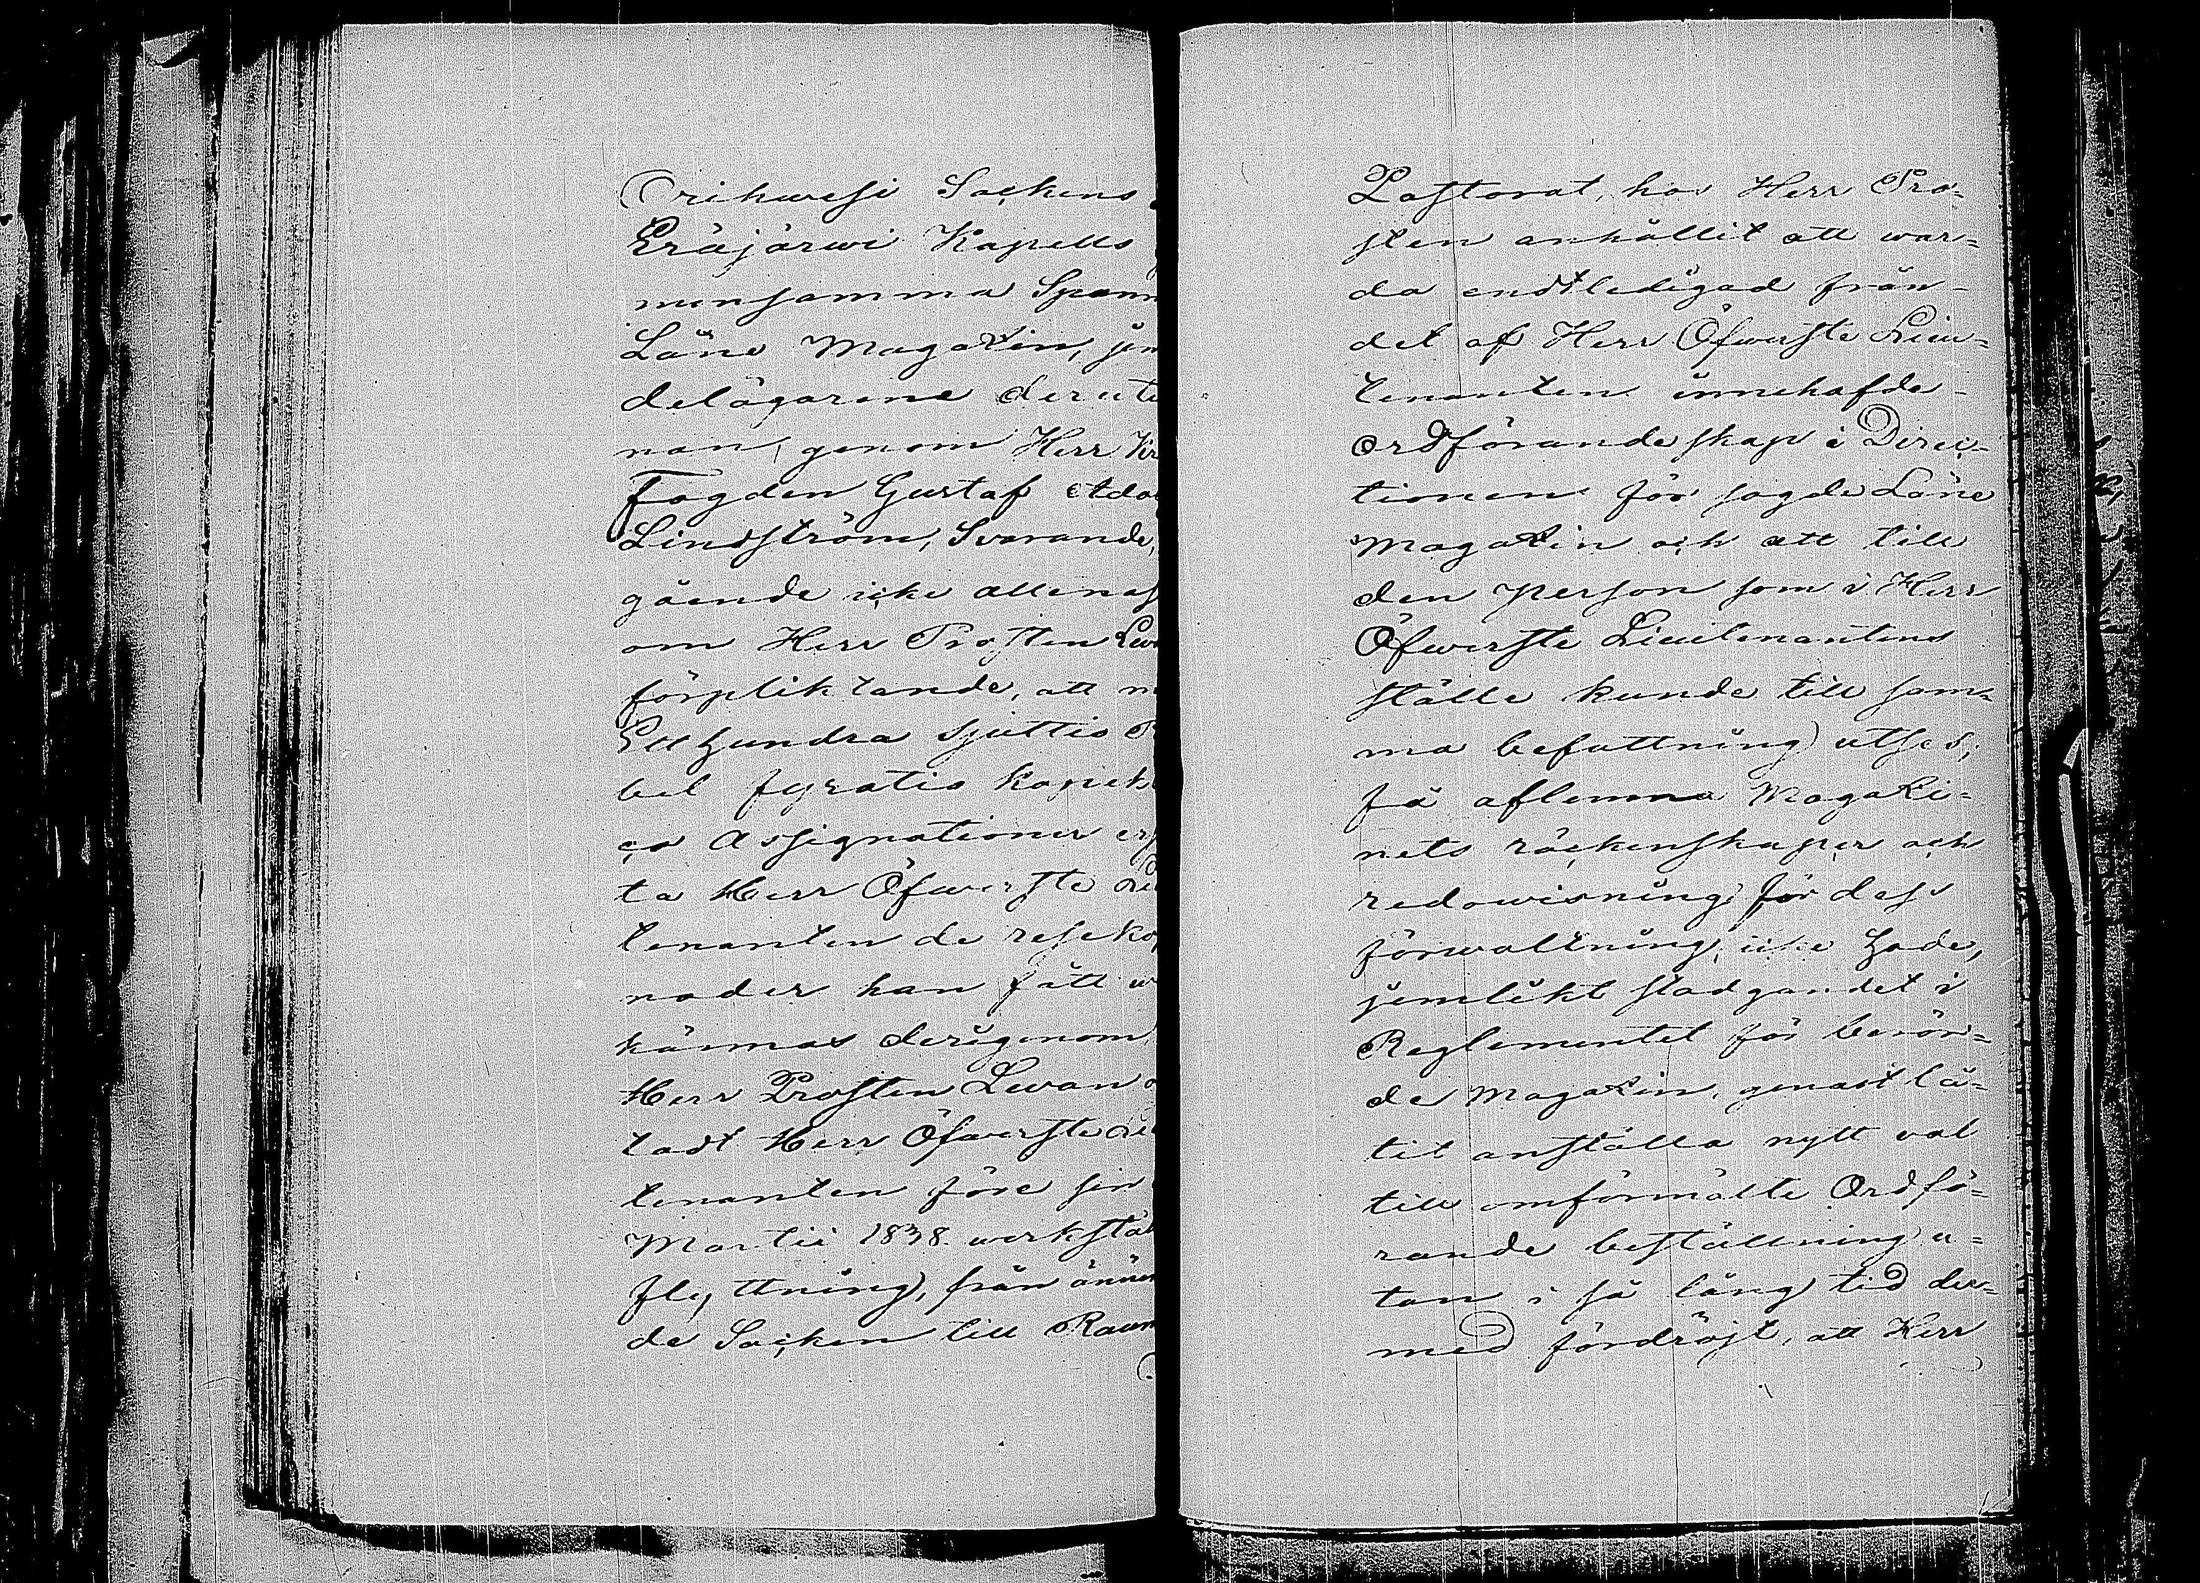 Orihwesi Sockens
Eräjärwi Kapells
mensamma Spann
Låne Magazin, jem
delägarene derute
nan, genom Herr Kr
Fogden Gustaf Ado
Lindström, Svarande,
gående icke allenas
om Herr Prosten Lew
förpliktande, att m
Etthundra sjuttio R
bel fyratio kopek
co Assignationer ers
ta Herr Öfwerste Lie
tenanten de resekos
nader han fått w
kännas derigenom,
Herr Prosten Lewan o
tadt Herr Öfwerste Lie
tenanten före sin
Martii 1838 werkstäl
flyttning, från änn
de Socken till Raum
Pastorat, hos Herr Pro-
sten anhållit att war-
da endtledigad från
det af Herr Öfwerste Lieu-
tenanten innehafde
ordförandeskap i Direc-
tionen för sagde Låne
Magazin och att till
den person som i Herr
Öfwerste Lieutenantens
ställe kunde till sam-
ma befattning utses,
få aflemna Magazi-
nets räckenskaper och
redowisning för dess
förwaltning, icke hade,
jemlikt stadgandet i
Reglementet för berör-
de Magazin, genast lå-
tit anställa nytt val
till omförmälte Ordfö-
rande beställning u-
tan i så lång tid der-
med fördröjt, att Herr